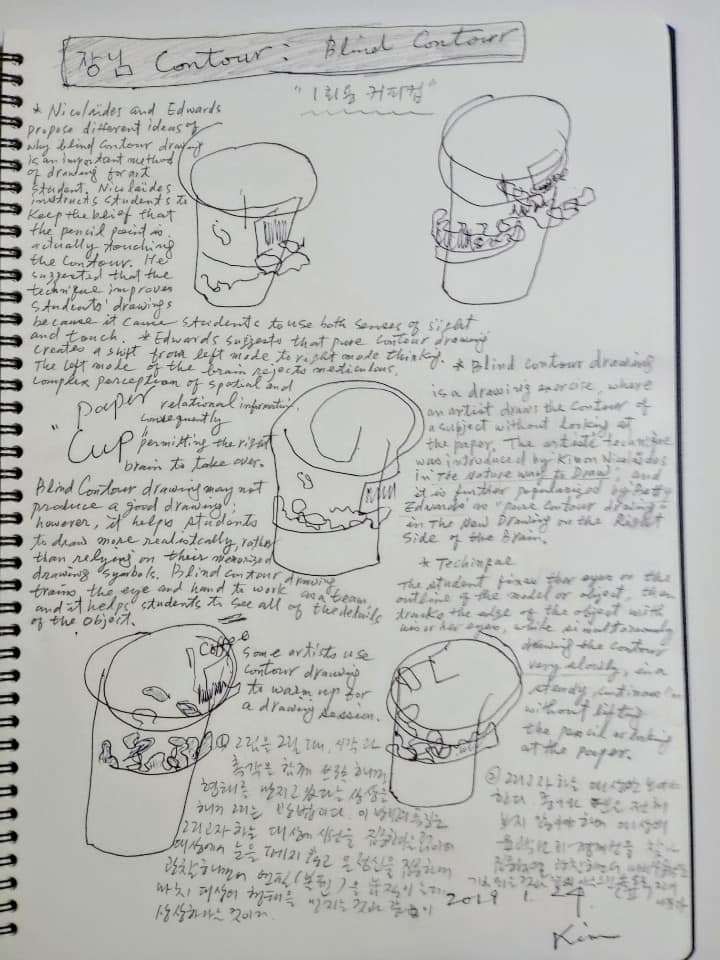 장님 Contour : Blind Contour
"1회용 커피컵"
* Nicolaïdes and Edwards
propose different ideas of
why blind contour drawing
is an important method
of drawing for art
student. Nicolaïdes
instructs students to
keep the belief that
the pencil point is
actually touching
the contour. He
suggested that the
technique improves
students' drawings
because it cause students to use both senses of sight
and touch. * Edwards suggests that pure contour drawing
creates a shift from left mode to right mode thinking.
The left mode of the brain rejects meticulous,
complex perception of spatial and
relational information,
consequently
permitting the right
brain to take over.
"paper
Cup"
Blind Contour drawing may not
produce a good drawing;
however, it helps students
to draw more realistically, rather
than relying on their memorized
drawing symbols. Blind contour drawing
trains the eye and hand to work as a team,
and it helps students to see all of the details
of the object.
* Blind contour drawing
is a drawing exercise, where
an artist draws the contour of
a subject without looking at
the paper. The artistic technique
was introduced by Kimon Nicolaïdes
in The Nature way to Draw, and
it is further popularized by Betty
Edwards as "pure contour drawing"
in The New Drawing on the Right
Side of the Brain.
* Techinpae
The student fixes their eyes on the
outline of the model or object, then
tracks the edge of the object with
his or her eyes, while simultaneously
drawing the contour
very slowly, in a
steady, continuous
without lifting
the pencil or looking
at the paper.
Coffee
some artists use
contour drawing
to warm up for
a drawing session.
① 그림을 그릴 때, 시각과
촉각을 함께
형태를 만지고 있다는 상상을
하며 그리는 방법이다. 이
그리고자 하는 대상에 시선을
대상에서 눈을 떼지 않고 온 정신을 집중하여
관찰하면서 연필(붓펜)을 움직이는데
마치 대상의 형태를 만지는 것과 같이
상상하라는 것이다.
② 그리고자 하는 대상만 보아야
한다.
보지 말아야 하며 대상의
2019 1. 24.
Kim